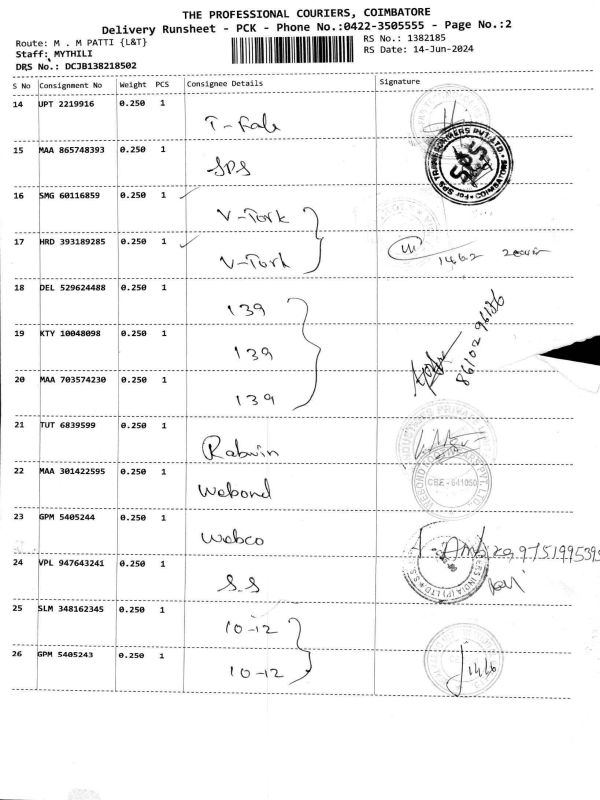 THE PROFESSIONAL COURIERS, COIMBATORE
Delivery Runsheet - PCK - Phone No.:0422-3505555 - Page No.:2
Route: M . M PATTI {L&T}
RS No.: 1382185
Staff: MYTHILI
RS Date: 14-Jun-2024
DRS No.: DCJB138218502
S No Consignment No Weight PCS Consignee Details Signature
14 UPT 2219916 0.250 1
T-Fab
15 MAA 865748393 0.250 1
SPS
SPS
COIMBATORE
16 SMG 60116859 0.250 1
V-Tork
17 HRD 393189285 0.250 1
V-Tork
1462
18 DEL 529624488 0.250 1
139
19 KTY 10048098 0.250 1
139
86102 96136
20 MAA 703574230 0.250 1
139
21 TUT 6839599 0.250 1
Rabwin
INDUSTRIES PRIVATE
22 MAA 301422595 0.250 1
Webond
CBE - 641050
23 GPM 5405244 0.250 1
Webco
9751995395
24 VPL 947643241 0.250 1
S.S
INDIA (P) LTD
25 SLM 348162345 0.250 1
10-12
26 GPM 5405243 0.250 1
10-12